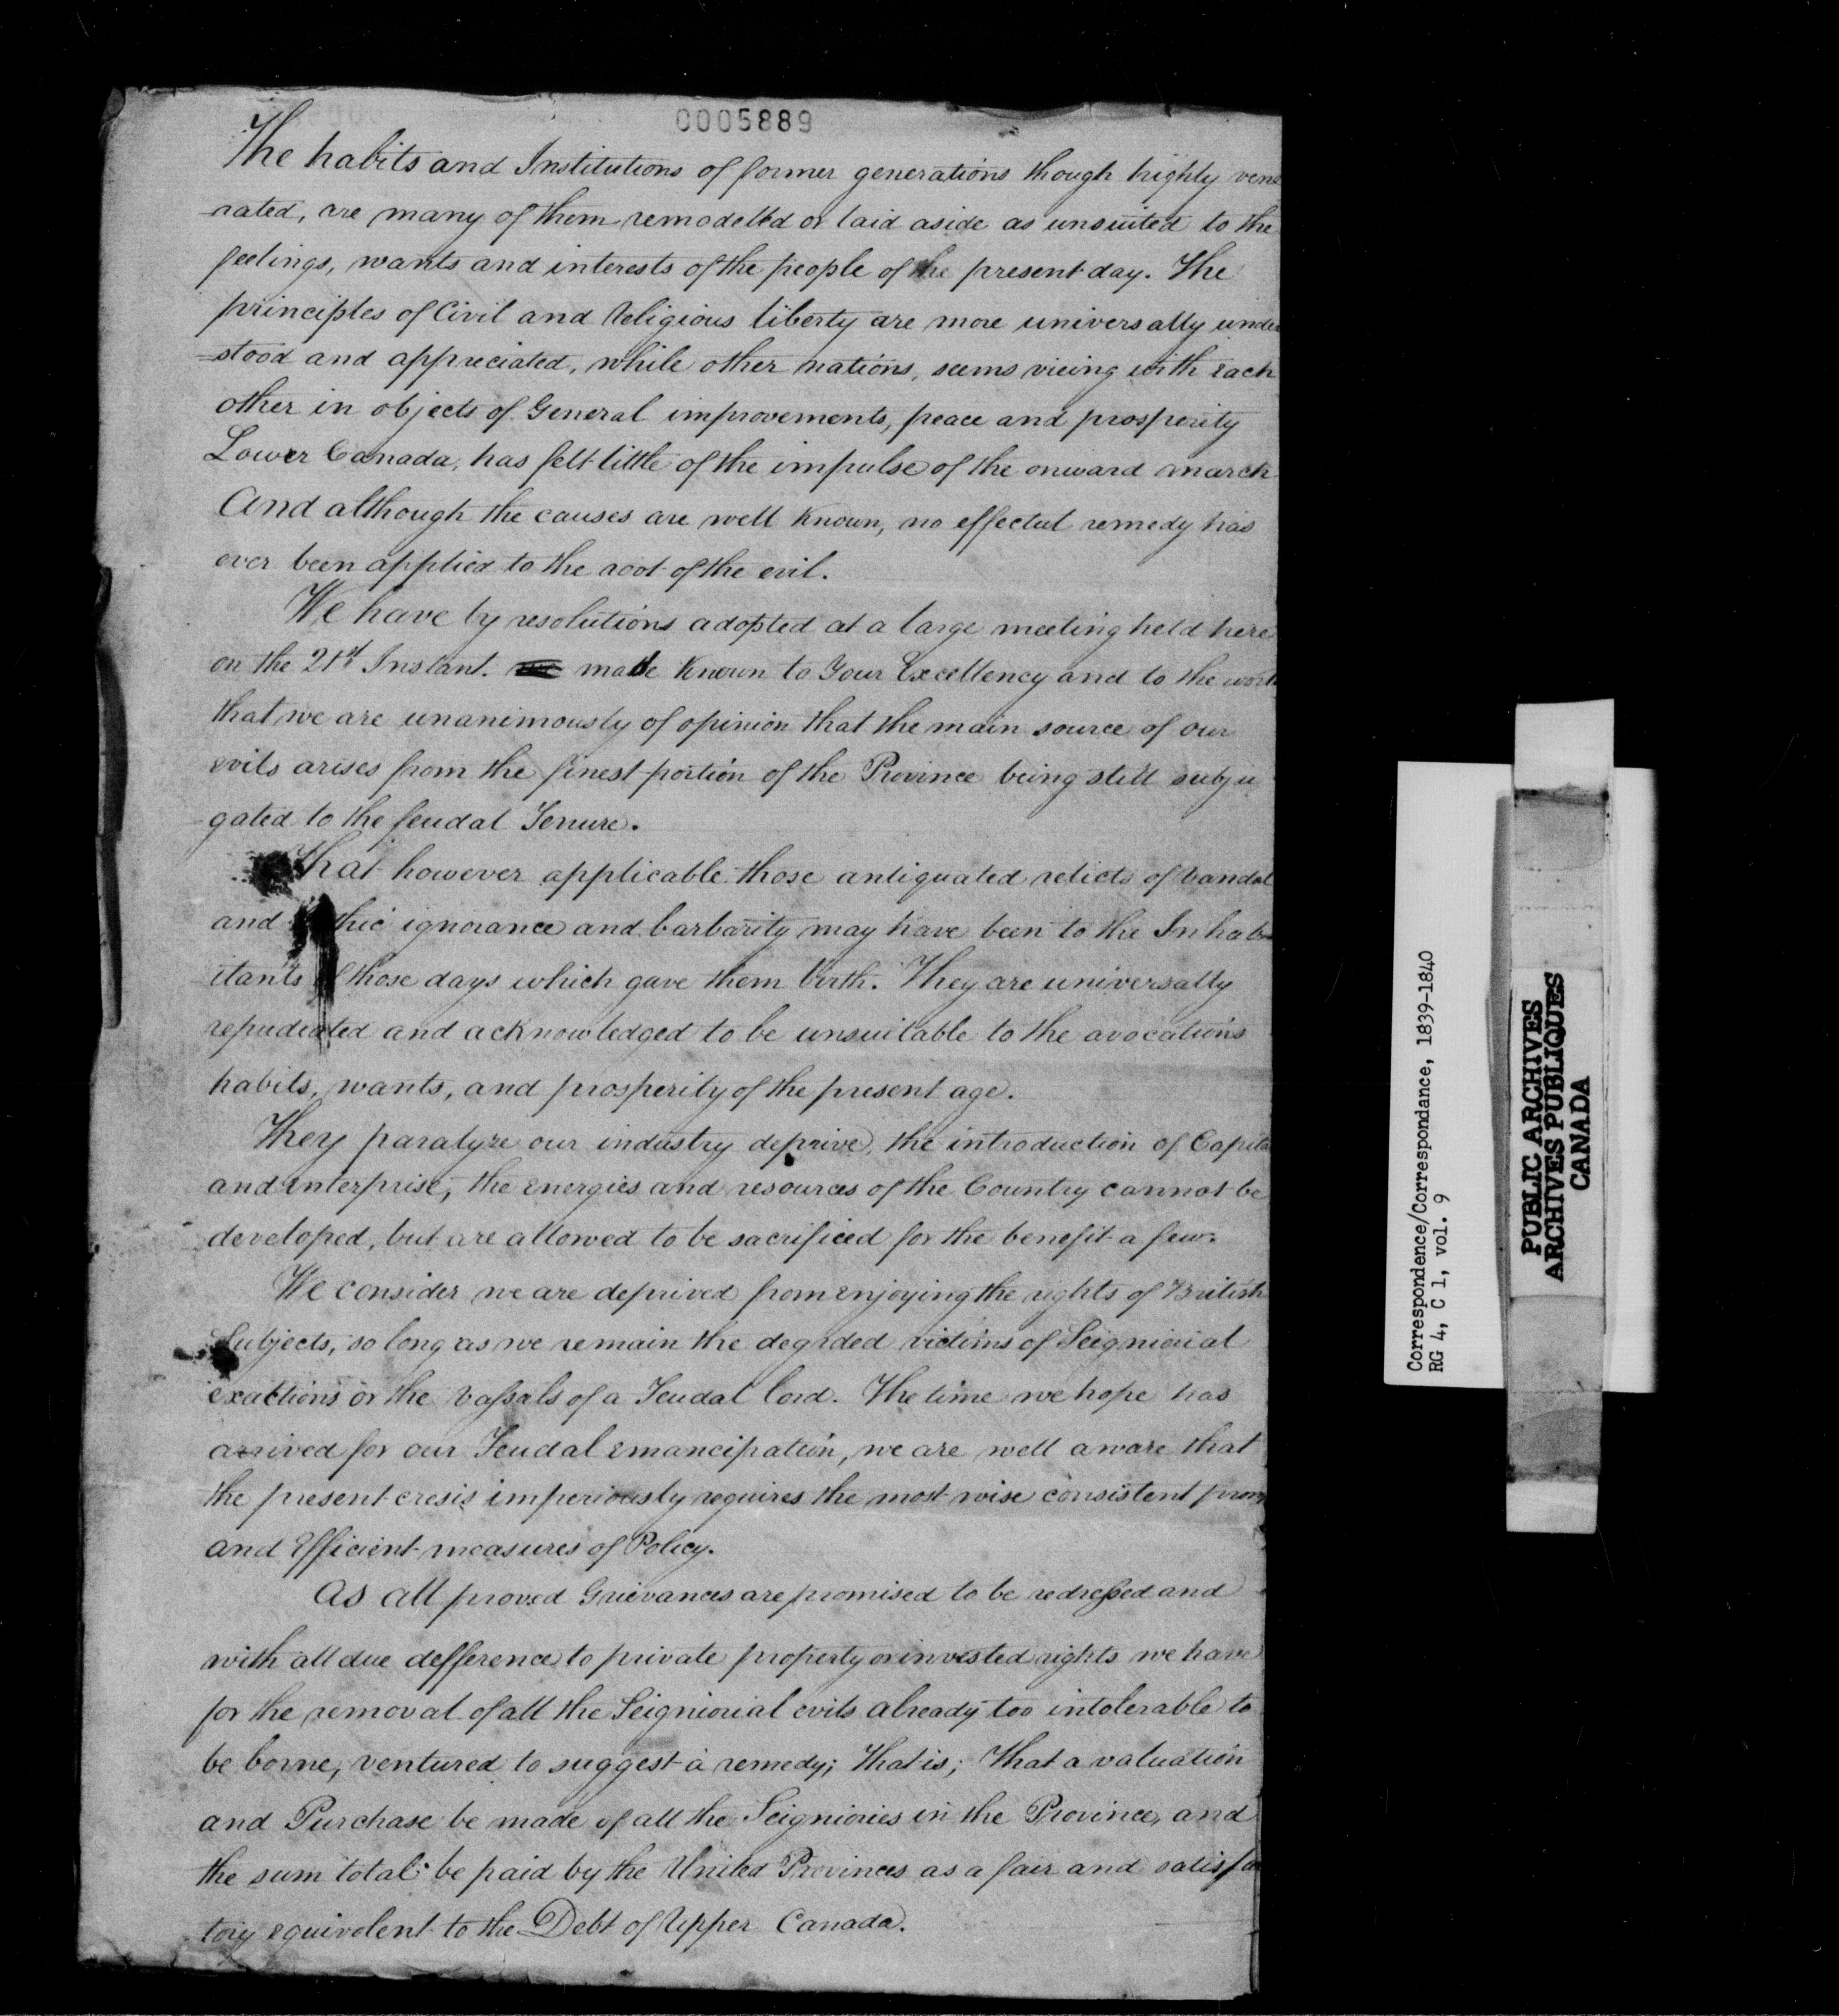 0005889
The habits and Institutions of former generations though highly vene
-rated, are many of them remodelled or laid aside as unsuited to the
feelings, wants and interests of the people of the present day. The
principles of Civil and Religious liberty are more universally under
=stood and appreciated, while other nations, seems vieing with each
other in objects of General improvements, peace and prosperity
Lower Canada, has felt little of the impulse of the onward march
And although the causes are well Known, no effectul remedy has
ever been applied to the root of the evil.
We have by resolutions adopted at a large meeting held here
on the 21st Instant. made Known to Your Excellency and to the worl
that we are unanimously of opinion that the main source of our
evils arises from the finest portion of the Province being still subju
-gated to the feudal Tenure.
That however applicable those antiquated relicts of Vandal
and thic ignorance and barbarity may have been to the Inhab
-itants of those days which gave them birth. They are universally
repudiated and acknowledged to be unsuitable to the avocations
habits, wants, and prosperity of the present age.
They paralyze our industry deprive, the introduction of Capita
and enterprise, the energies and resources of the Country cannot be
developed, but are allowed to be sacrificed for the benefit a few.
We consider we are deprived from enjoying the rights of British
Subjects, so long as we remain the degrded victims of Seigniorial
exactions or the Vassals of a Feudal Lord. The time we hope has
arrived for our Feudal emancipation, we are well aware that
the present cresis imperiously requires the most wise consistent prom
and Efficient measures of Policy.
As all proved Grievances are promised to be redressed and
with all due defference to private property or invested rights we have
for the removal of all the Seigniorial evils already too intolerable to
be borne, ventured to suggest a remedy; That is; That a valuation
and Purchase be made of all the Seigniories in the Province, and
the sum total be paid by the United Provinces as a fair and satisfac
tory equivolent to the Debt of Upper Canada.
Correspondence/Correspondance, 1839-1840
RG 4, C 1, vol. 9
PUBLIC ARCHIVES
ARCHIVES PUBLIQUES
CANADA